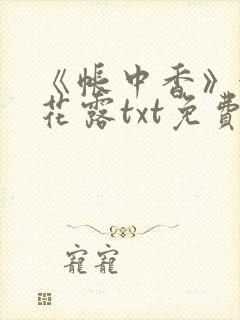 《帐中香》
花露txt免費
寵寵